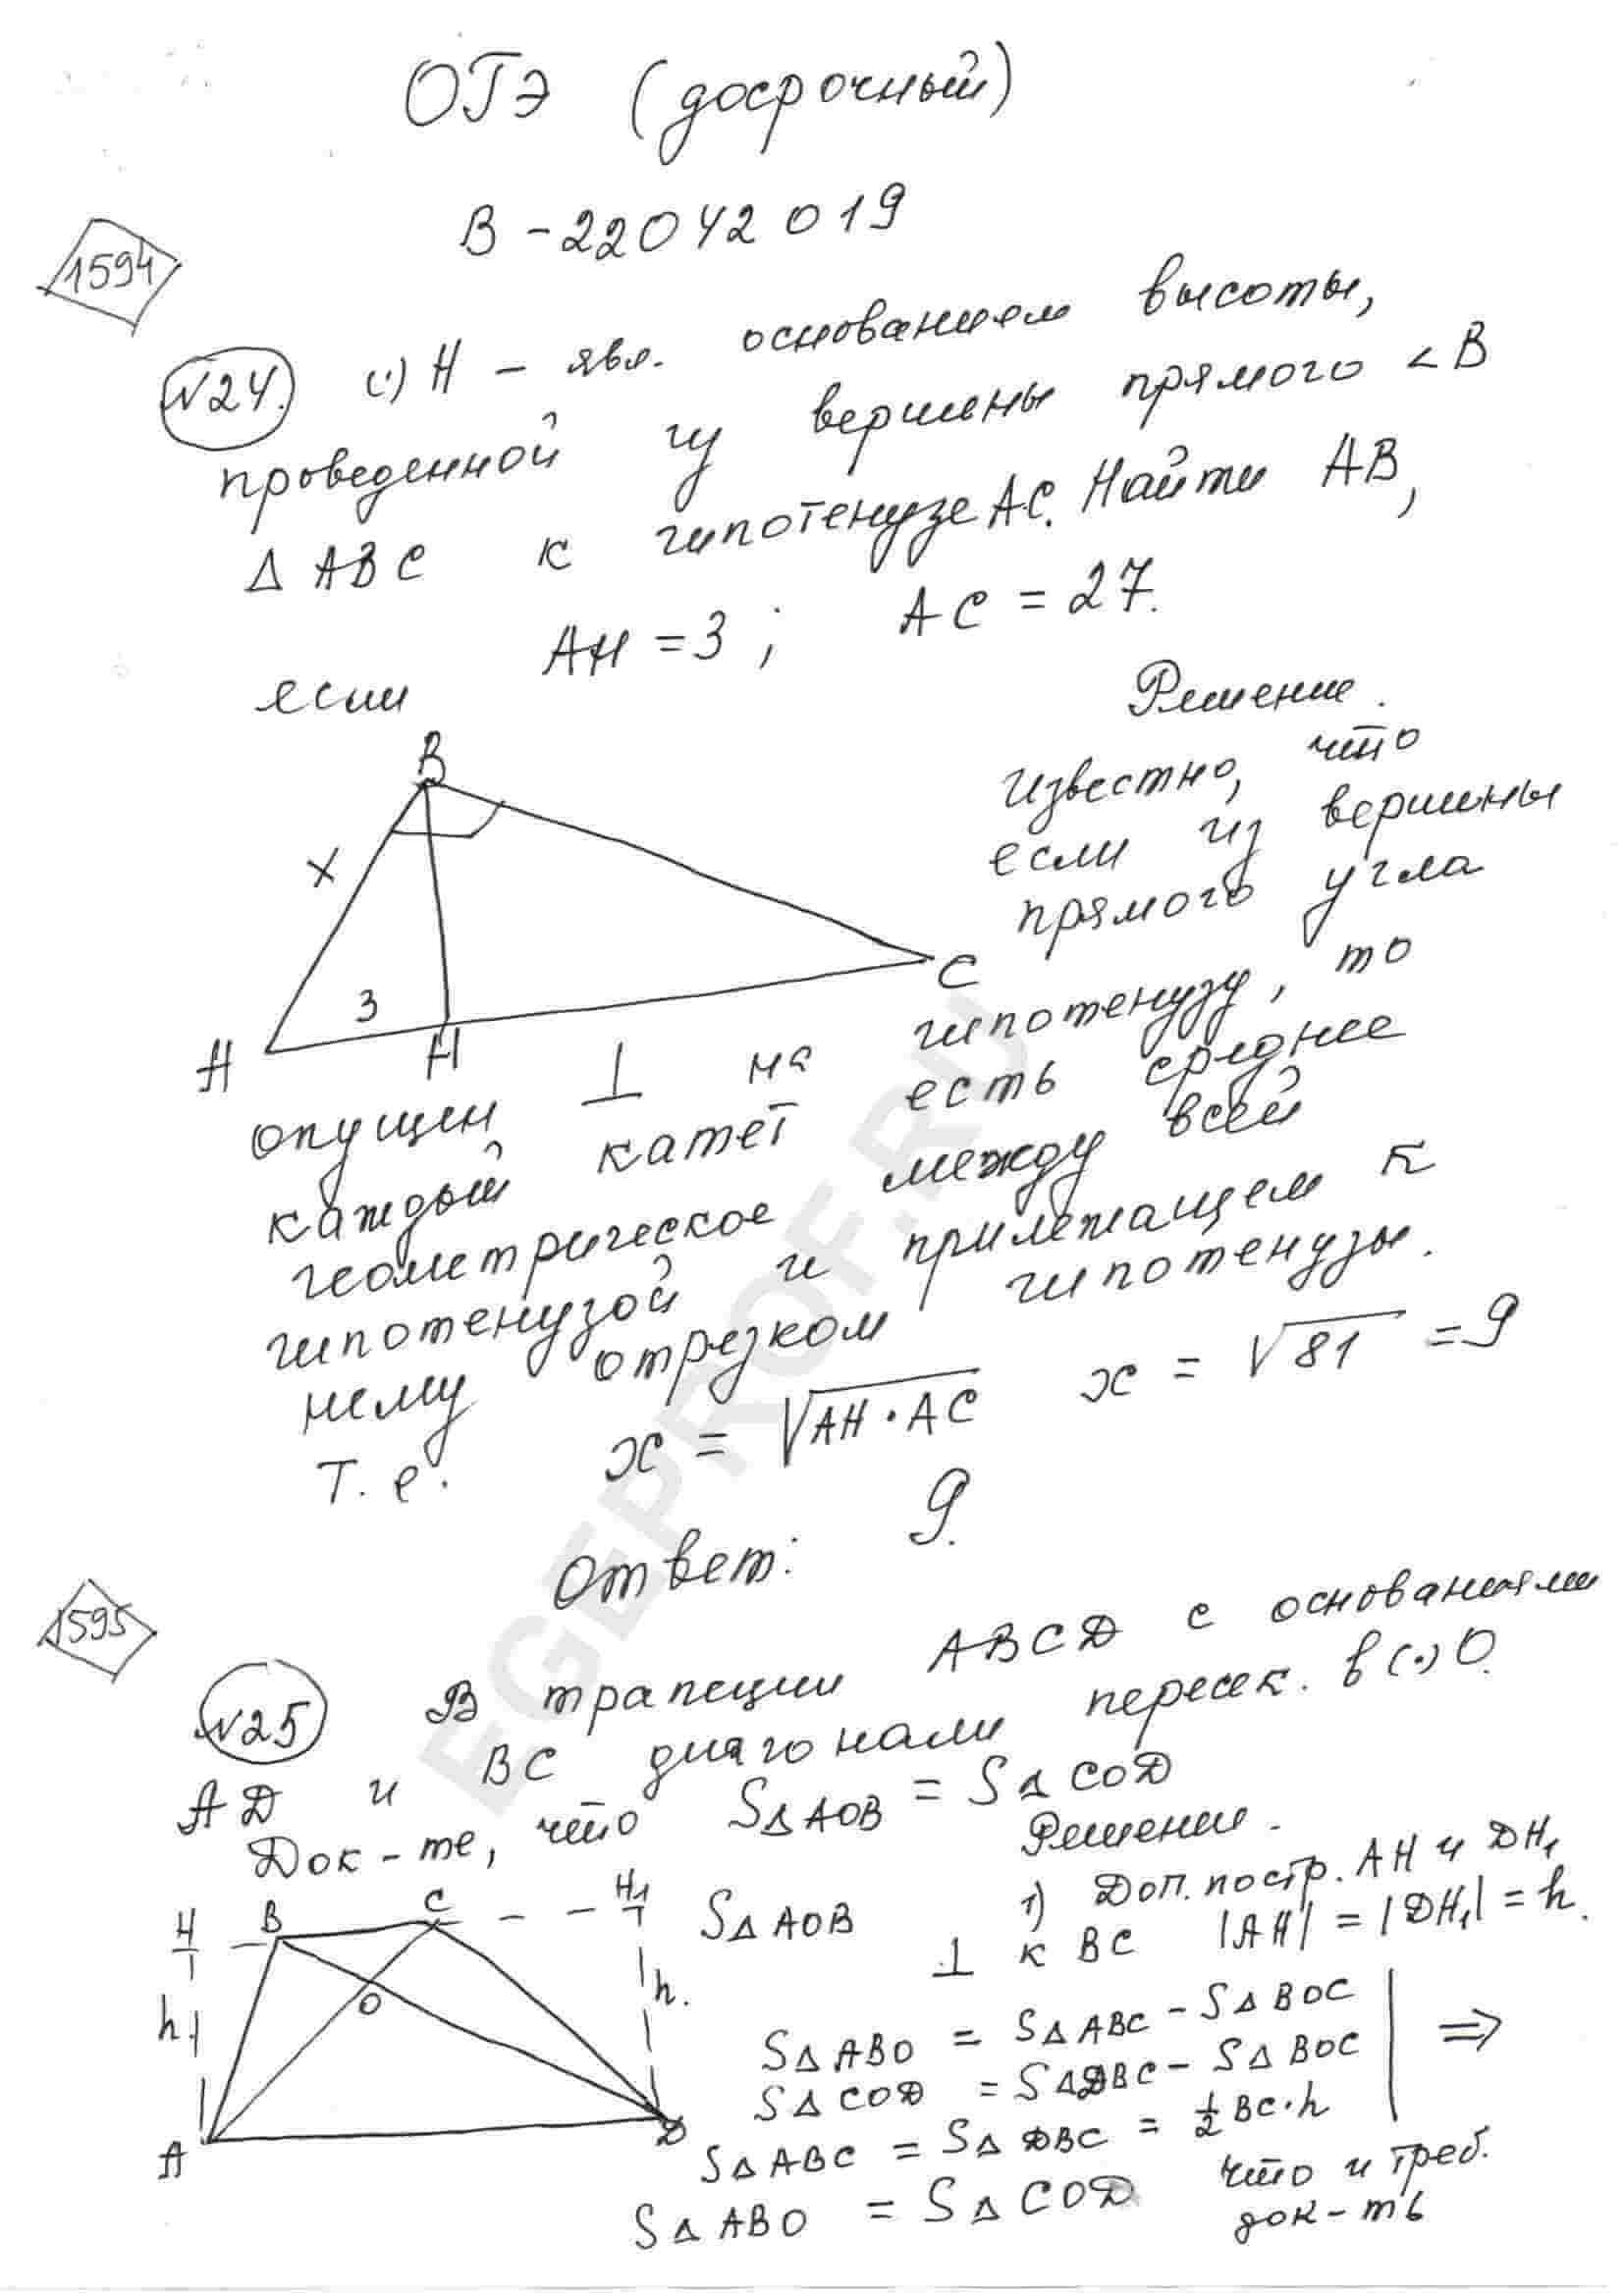 ОГЭ (досрочный)
В - 22042019
1594
№24. (·) H - явл. основанием высоты,
проведенной из вершины прямого ∠B
Δ ABC к гипотенузе AC. Найти AB,
если AH = 3 ; AC = 27.
Решение.
Известно, что
если из вершины
прямого угла
B
X
3
A
H
C
опущен ⊥ на гипотенузу, то
каждый катет есть среднее
геометрическое между всей
гипотенузой и прилежащем к
нему отрезком гипотенузы.
Т. е. x = √AH · AC x = √81 = 9
Ответ: 9.
1595
№25 В трапеции ABCD с основаниями
AD и BC диагонали пересек. в (·) O.
Док-те, что SΔAOB = SΔCOD
Решение.
1) Доп. постр. AH и DH₁
⊥ к BC |AH| = |DH₁| = h.
H B C H₁
SΔAOB
h
O
h.
A
D
SΔABO = SΔABC - SΔBOC
SΔCOD = SΔDBC - SΔBOC ⇒
SΔABC = SΔDBC = ½ BC·h
SΔABO = SΔCOD что и треб.
док-ть
EGEPROF.RU